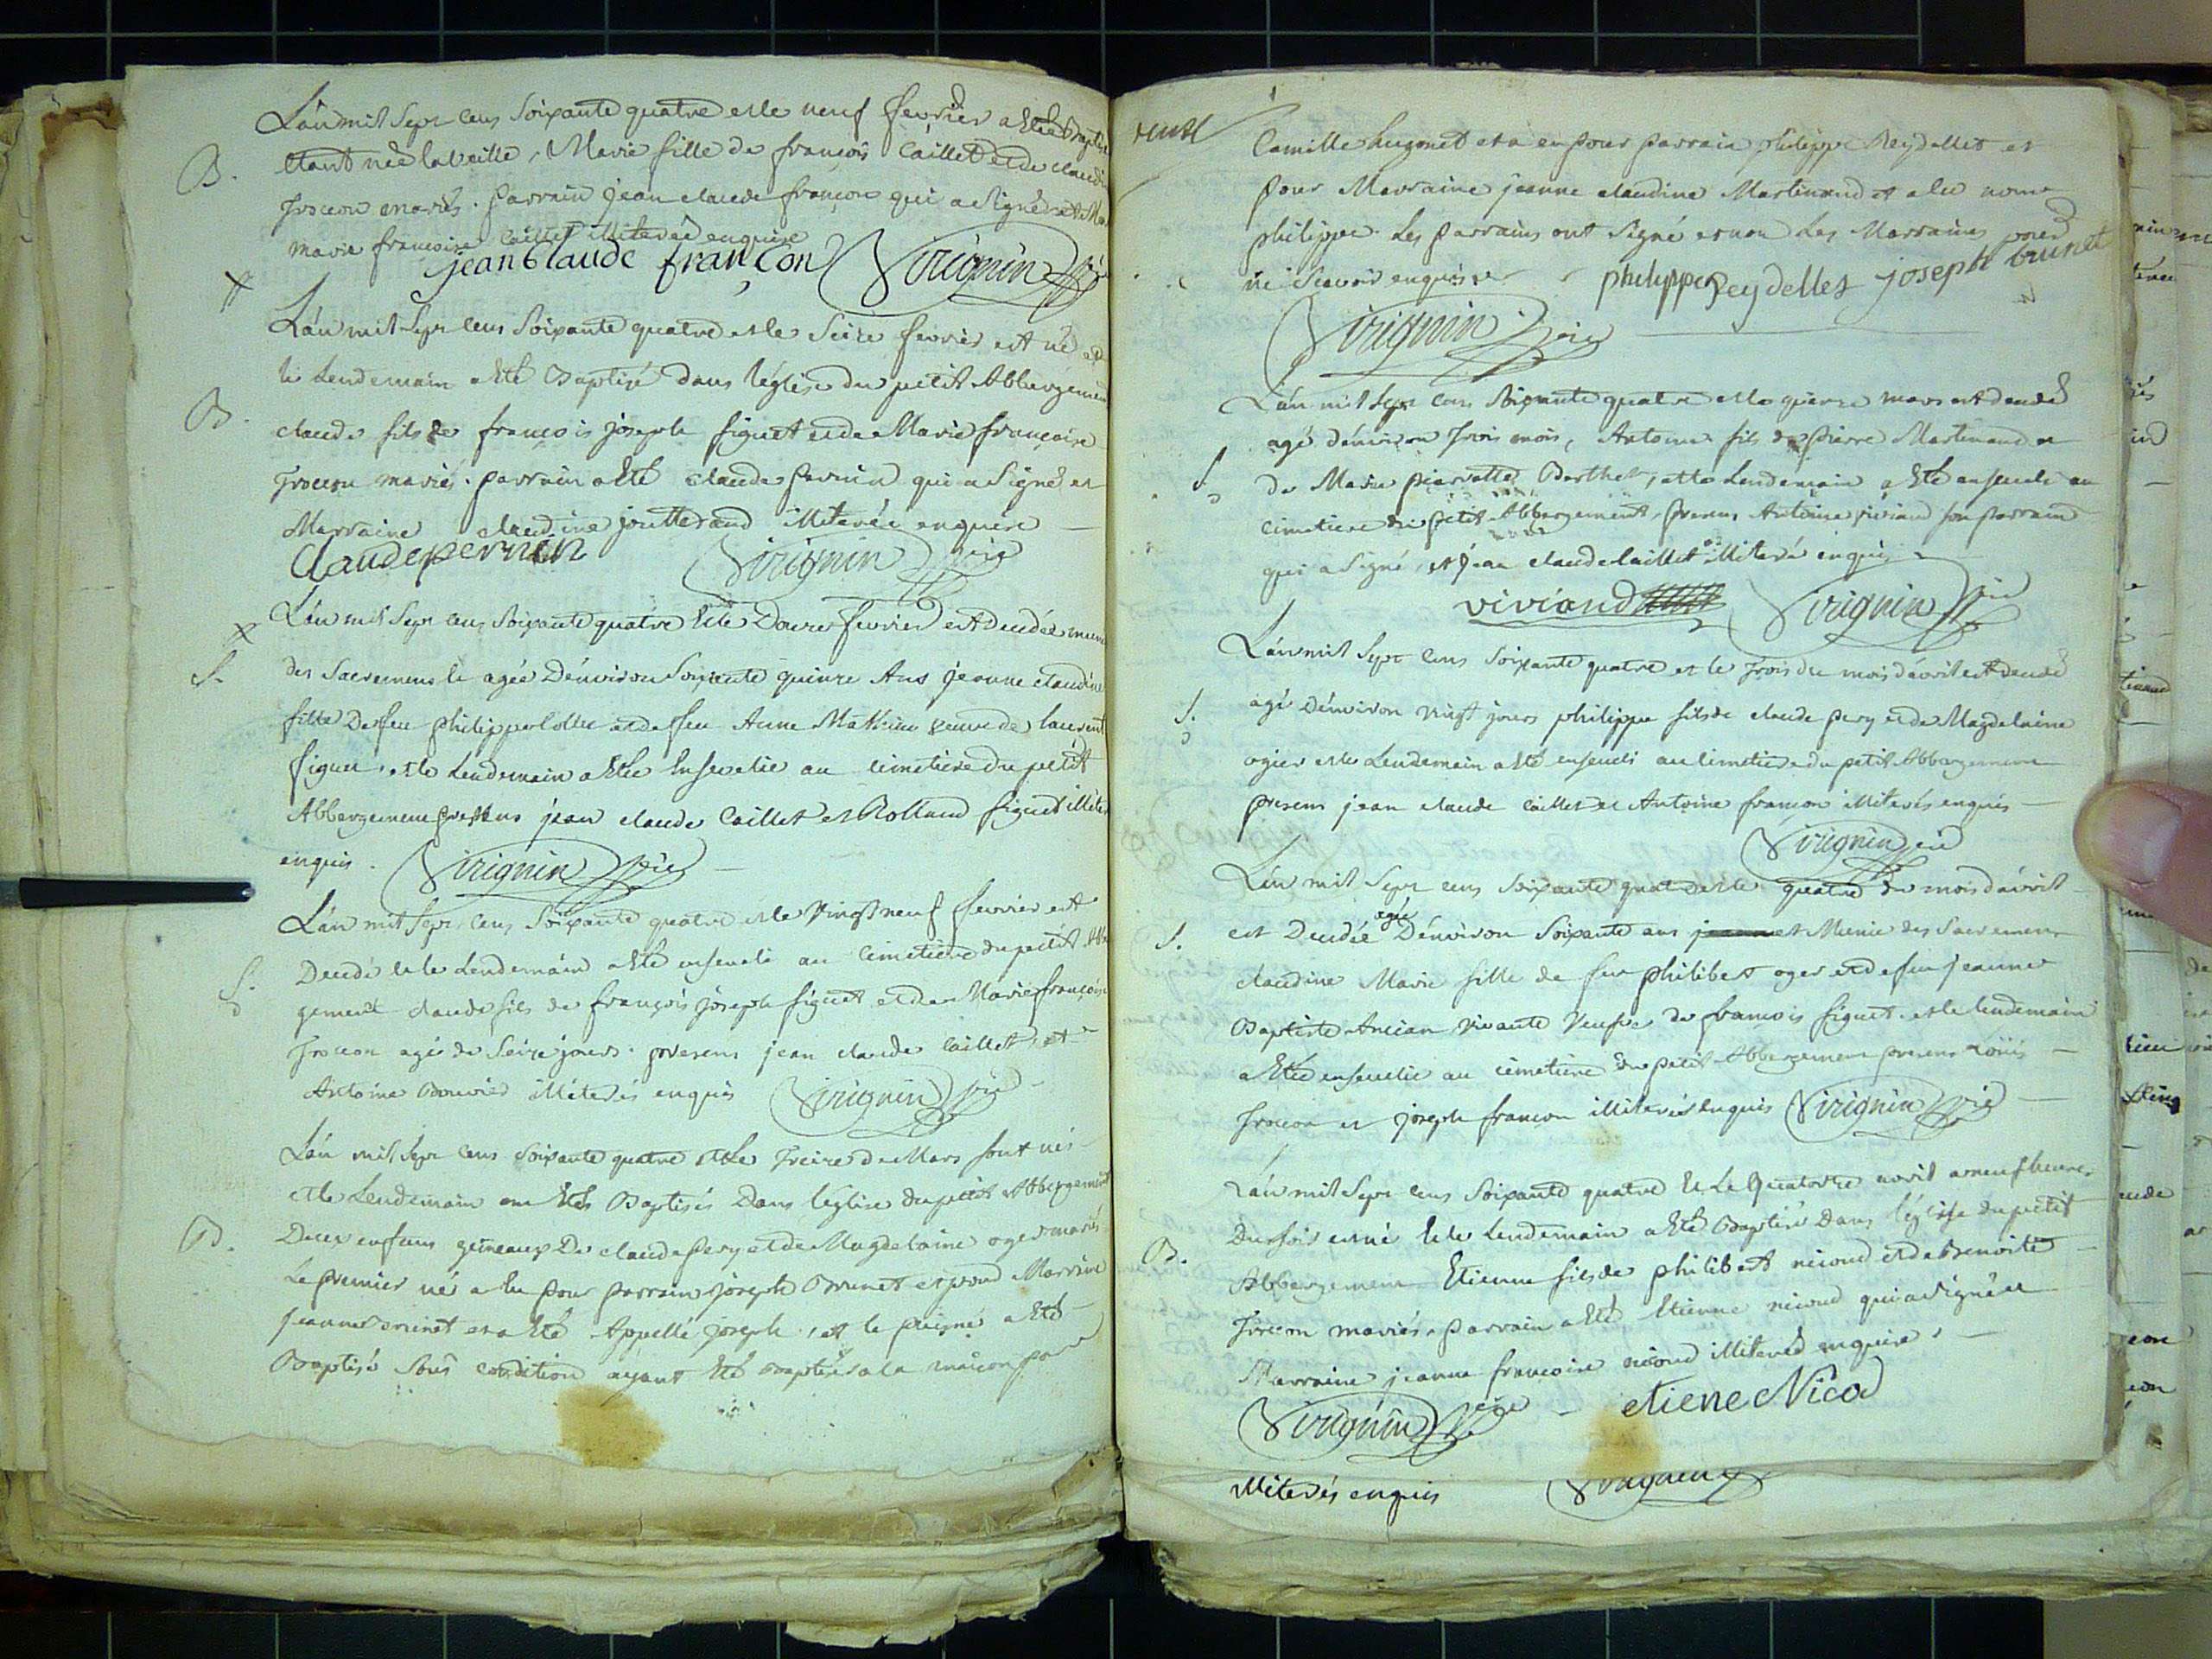 L'an mil sept cens soixante quatre et le neuf fevrier a Eté Baptisée
B.
Etant née la veille, Marie fille de françois Caillet et de claudine
Troccon mariés. parrain jean claude françon qui a signé et Ma
marie francoise Caillet illiterée enquise
jean Claude françon Virignin vic
L'an mil sept cens soixante quatre et le seize fevrier est né et
le Lendemain a Eté Baptisé dans l'église du petit Abbergement
B.
claude fils de françois joseph figuet et de Marie françoise
Troccon mariés. parrain a Eté claude perrin qui a signé et
Marraine claudine jutterand illiterée enquise
Claude perrnin Virignin vic
L'an mil sept cens soixante quatre et le Douze fevrier est decedée munie
S.
des sacremens et agée D'environ soixante quinze Ans jeanne claudine
fille De feu philippe et de feu Anne Mathieu veuve de laurent
figuet. et le Lendemain a Etée Ensevelie au cimetiere du petit
Abbergement presens jean claude Caillet et Rolland figuet illiterés
enquis. Virignin vic
L'an mil sept cens soixante quatre et le vingt neuf fevrier est
S.
Decedé et le Lendemain a Eté enseveli au cimetiere du petit Abber
gement claude fils de françois joseph figuet et de Marie françoise
Troccon agé de seize jours. presens jean claude Caillet, et
Antoine Bouvier illiterés enquis Virignin vic
L'an mil sept cens soixante quatre et Le Treize de Mars sont nés
et le Lendemain ont Etés Baptisés Dans l'église du petit Abbergement
B.
Deux enfans gemeaux De claude pery et de Magdelaine oger mariés
Le premier né a Eu pour parrain joseph Brunet et pour Marraine
jeanne brunet et a Eté Appellé joseph, et le puisné a Eté
Baptisé sous condition ayant Eté baptisé a la maison par
Camille hugonet et a eu pour parrain philippe Reydellet et
pour Marraine jeanne claudine Martinand et a eu nom
philippe. Les parrains ont signé et non Les Marraines pour
ne sçavoir enquises philippe Reydellet joseph brunet
Virignin vic
L'an mil sept cens soixante quatre et le quinze mars est decedé
agé d'environ Trois mois, Antoine fils de pierre Martinand et
S.
de Marie pierrette Berthet, et le Lendemain a Eté enseveli au
cimetiere du petit Abbergement, presens Antoine viviand son parrain
qui a signé, et jean claude Caillet illiteré enquis
viviand Virignin vic
L'an mil sept cens soixante quatre et le Trois du mois d'avril est decedé
S.
agé D'environ vingt jours philippe fils de claude pery et de Magdelaine
ogier et le Lendemain a Eté enseveli au cimetiere du petit Abbergement
presens jean claude Caillet et Antoine françon illiterés enquis
Virignin vic
L'an mil sept cens soixante quatre et le quatre du mois d'avril
S.
est Decedée agée D'environ soixante ans et Munie des sacremens
claudine Marie fille de feu philibert oger et de feu jeanne
Baptiste Ancian vivante veufve de françois figuet. et le lendemain
a Etée ensevelie au cimetiere du petit Abbergement presens Louis
Troccon et joseph françon illiterés Enquis Virignin vic
L'an mil sept cens soixante quatre Et Le Quatorze avril a neuf heures
Du soir est né Et le Lendemain a Eté Baptisé Dans l'église du petit
B.
Abbergement Etienne fils de philibert nicoud et de benoite
Troccon mariés. parrain a Eté Etienne nicoud qui a signé et
Marraine jeanne francoise nicoud illiterée enquise.
Virignin vic etiene Nicod
illiterés enquis Virignin